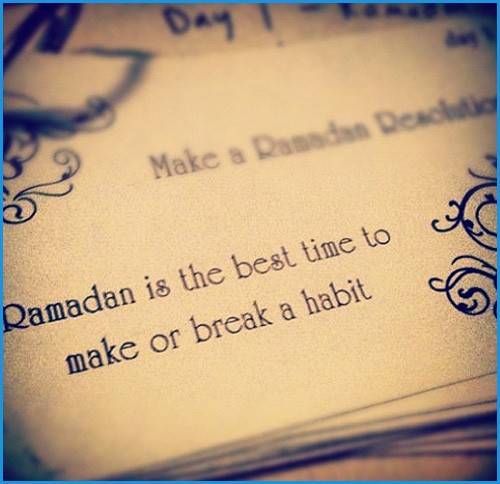 Day 1 - Ramadan
day 1
Make a Ramadan Resolution
Ramadan is the best time to
make or break a habit